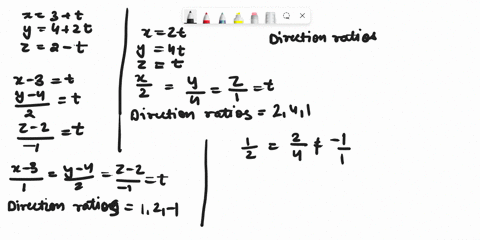 x = 3+t
y = 4+2t
z = 2-t
x-3 = t
y-4/2 = t
z-2/-1 = t
x-3/1 = y-4/2 = z-2/-1 = t
Direction ratios = 1, 2, -1
x = 2t
y = 4t
z = t
x/2 = y/4 = z/1 = t
Direction ratios = 2, 4, 1
Direction ratios
1/2 = 2/4 ≠ -1/1